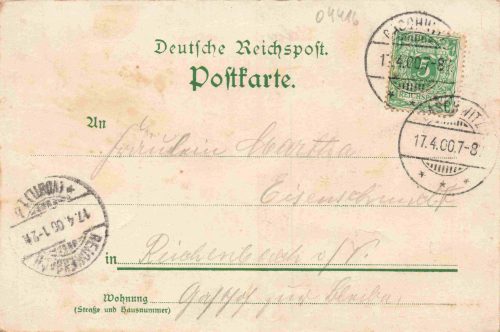 04416
Deutsche Reichspost.
Postkarte.
GASCHWITZ
17.4.00.7-8
5
REICHSPOST
GASCHWITZ
17.4.00.7-8
An
Fräulein Martha
in Reichenbach i/V.
REICHENBACH
17.4.00.1-2N.
(VOGTL)
Wohnung
(Straße und Hausnummer)